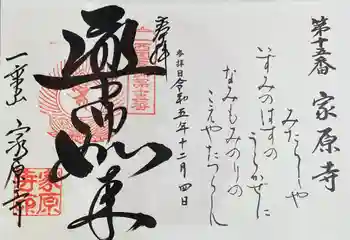 第十五番 家原寺
みたらしや
いずみのはすの
うらかぜに
なみもみのりの
こえやたつらん
参拝日令和五年十二月四日
奉拝
如来
一乗山 家原寺
家原寺印